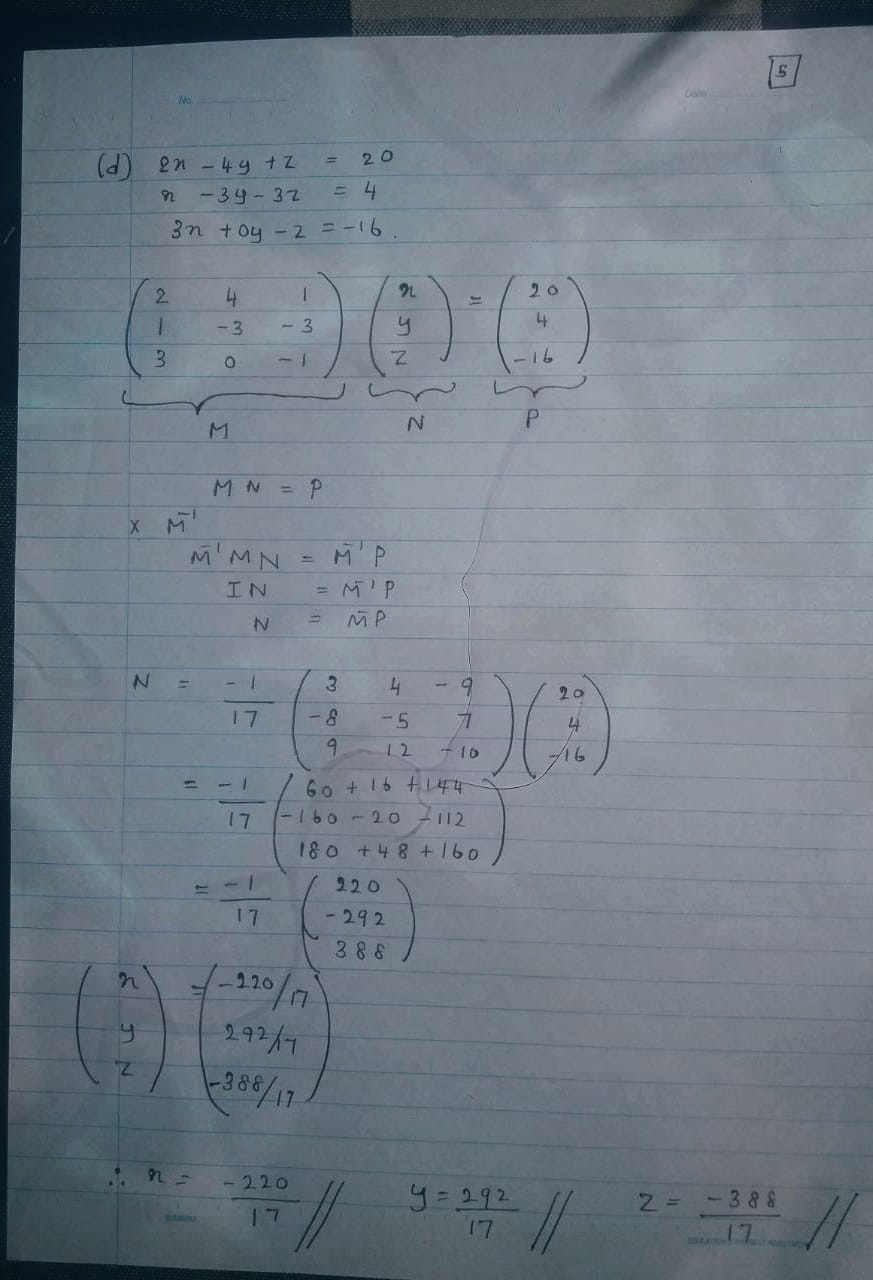 5
No.
Date
(d) 2x - 4y + z = 20
x - 3y - 3z = 4
3x + 0y - z = -16.
( 2 4 1 ) ( x ) = ( 20 )
( 1 -3 -3 ) ( y ) ( 4 )
( 3 0 -1 ) ( z ) ( -16 )
M N P
M N = P
x M⁻¹
M⁻¹ M N = M⁻¹ P
I N = M⁻¹ P
N = M⁻ P
N = -1/17 ( 3 4 -9 ) ( 20 )
( -8 -5 7 ) ( 4 )
( 9 12 -10 ) ( -16 )
= -1/17 ( 60 + 16 + 144 )
( -160 - 20 - 112 )
( 180 + 48 + 160 )
= -1/17 ( 220 )
( -292 )
( 388 )
( x ) = ( -220/17 )
( y ) ( 292/17 )
( z ) ( -388/17 )
∴ x = -220/17 // y = 292/17 // z = -388/17 //